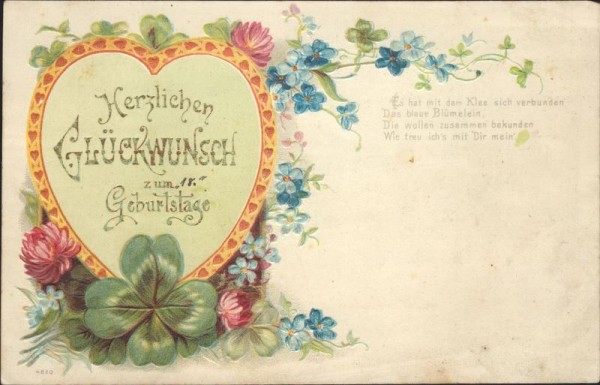 Herzlichen
GLÜCKWUNSCH
zum 18.
Geburtstage
Es hat mit dem Klee sich verbunden
Das blaue Blümelein,
Die wollen zusammen bekunden
Wie treu ich's mit Dir mein'.